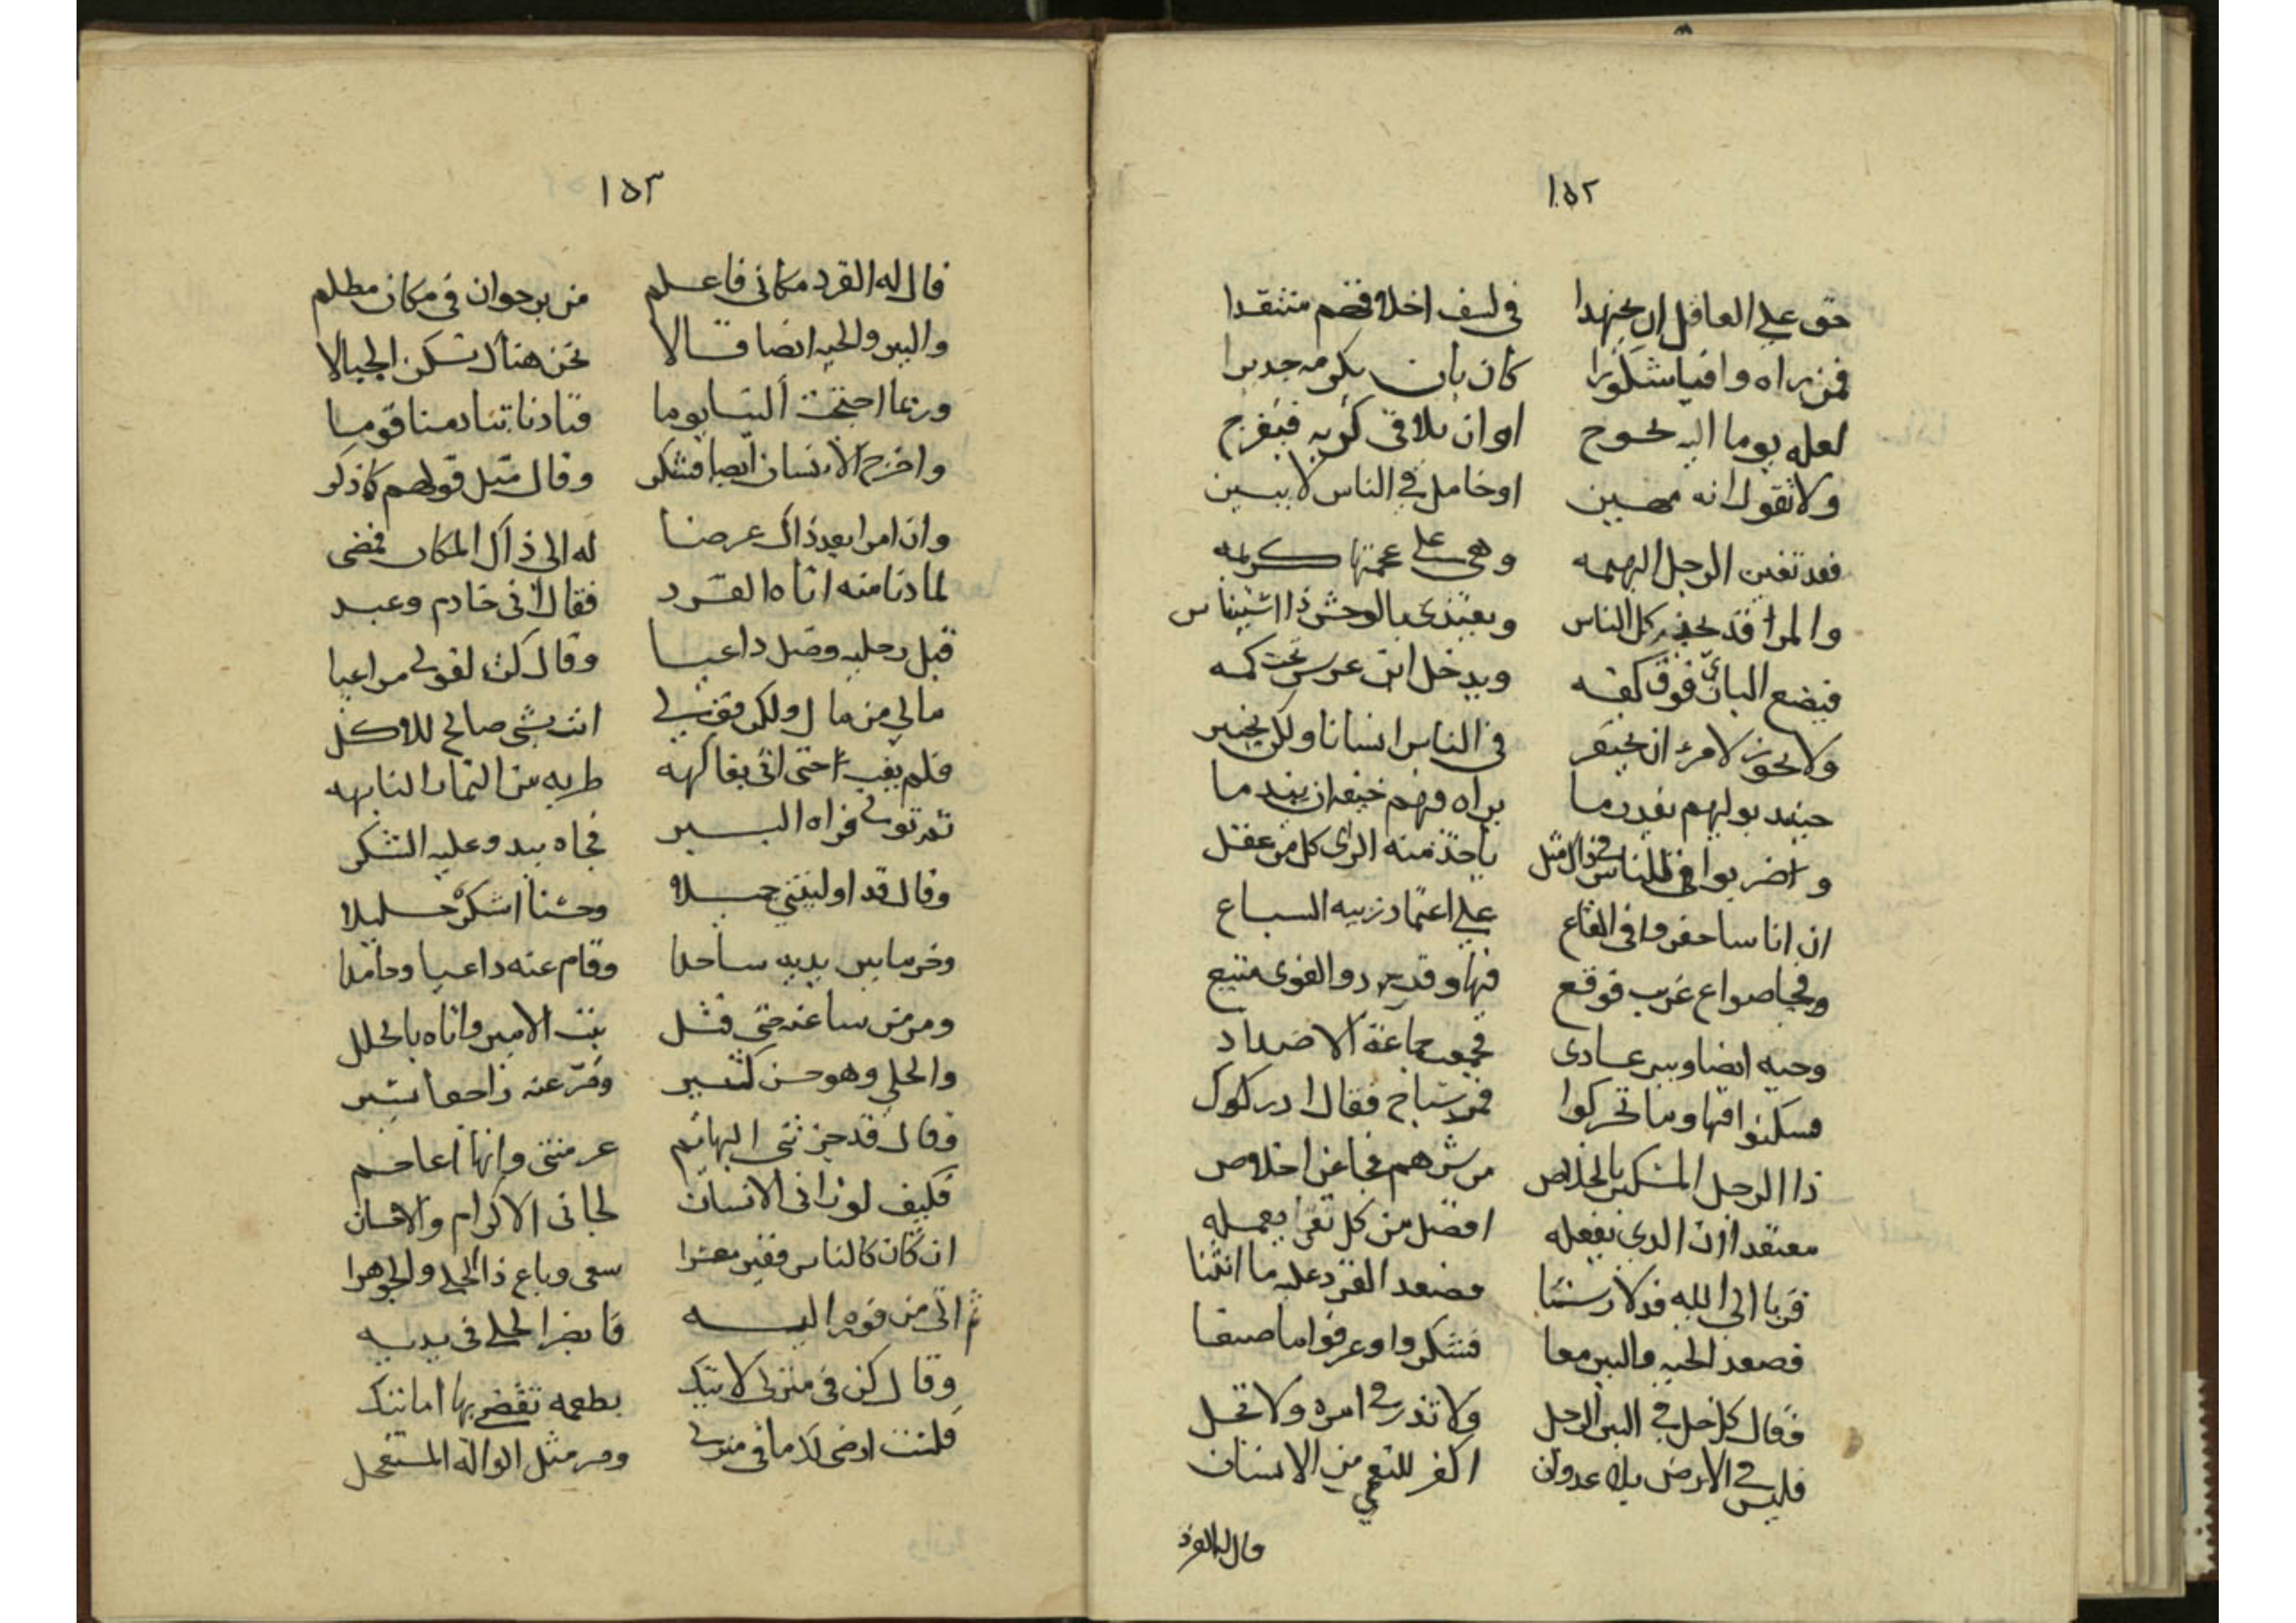 ١٥٢
حق على العاقل ان يجتهدا في كشف اخلاقهم منتقدا
فمن يراه وافيا شكورا كان بان يكرمه جديرا
لعله يوما اليه يحوج او ان يلاقي كربه فيفرج
ولا تقول انه مهين او خامل في الناس لا يبين
فقد تعين الرجل البهيمه وهي على عجمتها كريمه
والمرا قد يحذر كل الناس ويغتدى بالوحش ذا استيناس
فيضع البازي فوق كفه ويدخل ابن عرس تحت كمه
ولا يجوز لامرء ان يحتقر في الناس انسانا ولكن يختبر
حينيد يوليهم بقدر ما يراه فيهم خيفه ان يندما
واضربوا في للناس في ذاك مثل ياخذ منه الراى كل من عقل
ان اناسا حفروا في القاع على اعتماد زبيه السباع
وفجا صواع غريب فوقع فيها وقد
وحيه ايضا وببر عادى فجمعت جماعة الاضداد
فسكنوا فيها وما تحركوا فمر سياح فقال ادركوك
ذا الرجل المسكين بالخلاص من شرهم فجا عن اخلاص
معتقدا ان الذي يفعله افضل من كل تقى يعمله
قربا الى الله فدلا رسنا فصعد القرد عليه ما انثنا
فصعد الحيه والببر معا فشكروا وعرفوا ما صنعا
فقال كل خل في البير الرجل ولا تذر في امره ولا تحل
فليس في الارض بلا عدوان اكفر للنعمي من الانسان
قال له القرد
١٥٣
قال له القرد مكاني فاعلم من برجوان في مكان مظلم
والببر والحيه ايضا قالا نحن هناك نسكن الجبالا
وربما احتجت الينا يوما فنادنا تنادمنا قوما
واخرج الانسان ايضا فشكر وقال مثل قولهم كما ذكر
وان امرا بعد ذاك عرضا له الى ذاك المكان فمضى
لما دنا منه اتاه القرد فقال اني خادم وعبد
قبل رجليه وظل داعيا وقال كن لقولي مراعيا
مالي من مال ولكن قف لي انت بشى صالح للاكل
فلم يغب حتى اتى بفاكهه طريه من الثمار النابهه
ثم تولى فراه الببر فجاه يبدو عليه الشكر
وقال قد اوليتني جميلا وحسنا اشكره جليلا
وخر ما بين يديه ساجدا وقام عنه داعيا وحامدا
ومر من ساعته حتى قتل بنت الامير واتاه بالحلل
والحلي وهو حسن كثير وفر عنه راجعا يسير
وقال قد جزتني البهائم عرفتني وانها اعاجم
فكيف لو راني الانسان لجاني الاكرام والاحسان
ان كان كالناس فقير معسرا سعى وباع ذا الحلي والجوهرا
ثم اتى من فوره اليه قابض الحلي في يديه
وقال كن في منزلي لاتيك بطعمه تقضي بها امانيك
فلست ارضى لك ما في منزلي ومر مثل الواله المستعجل